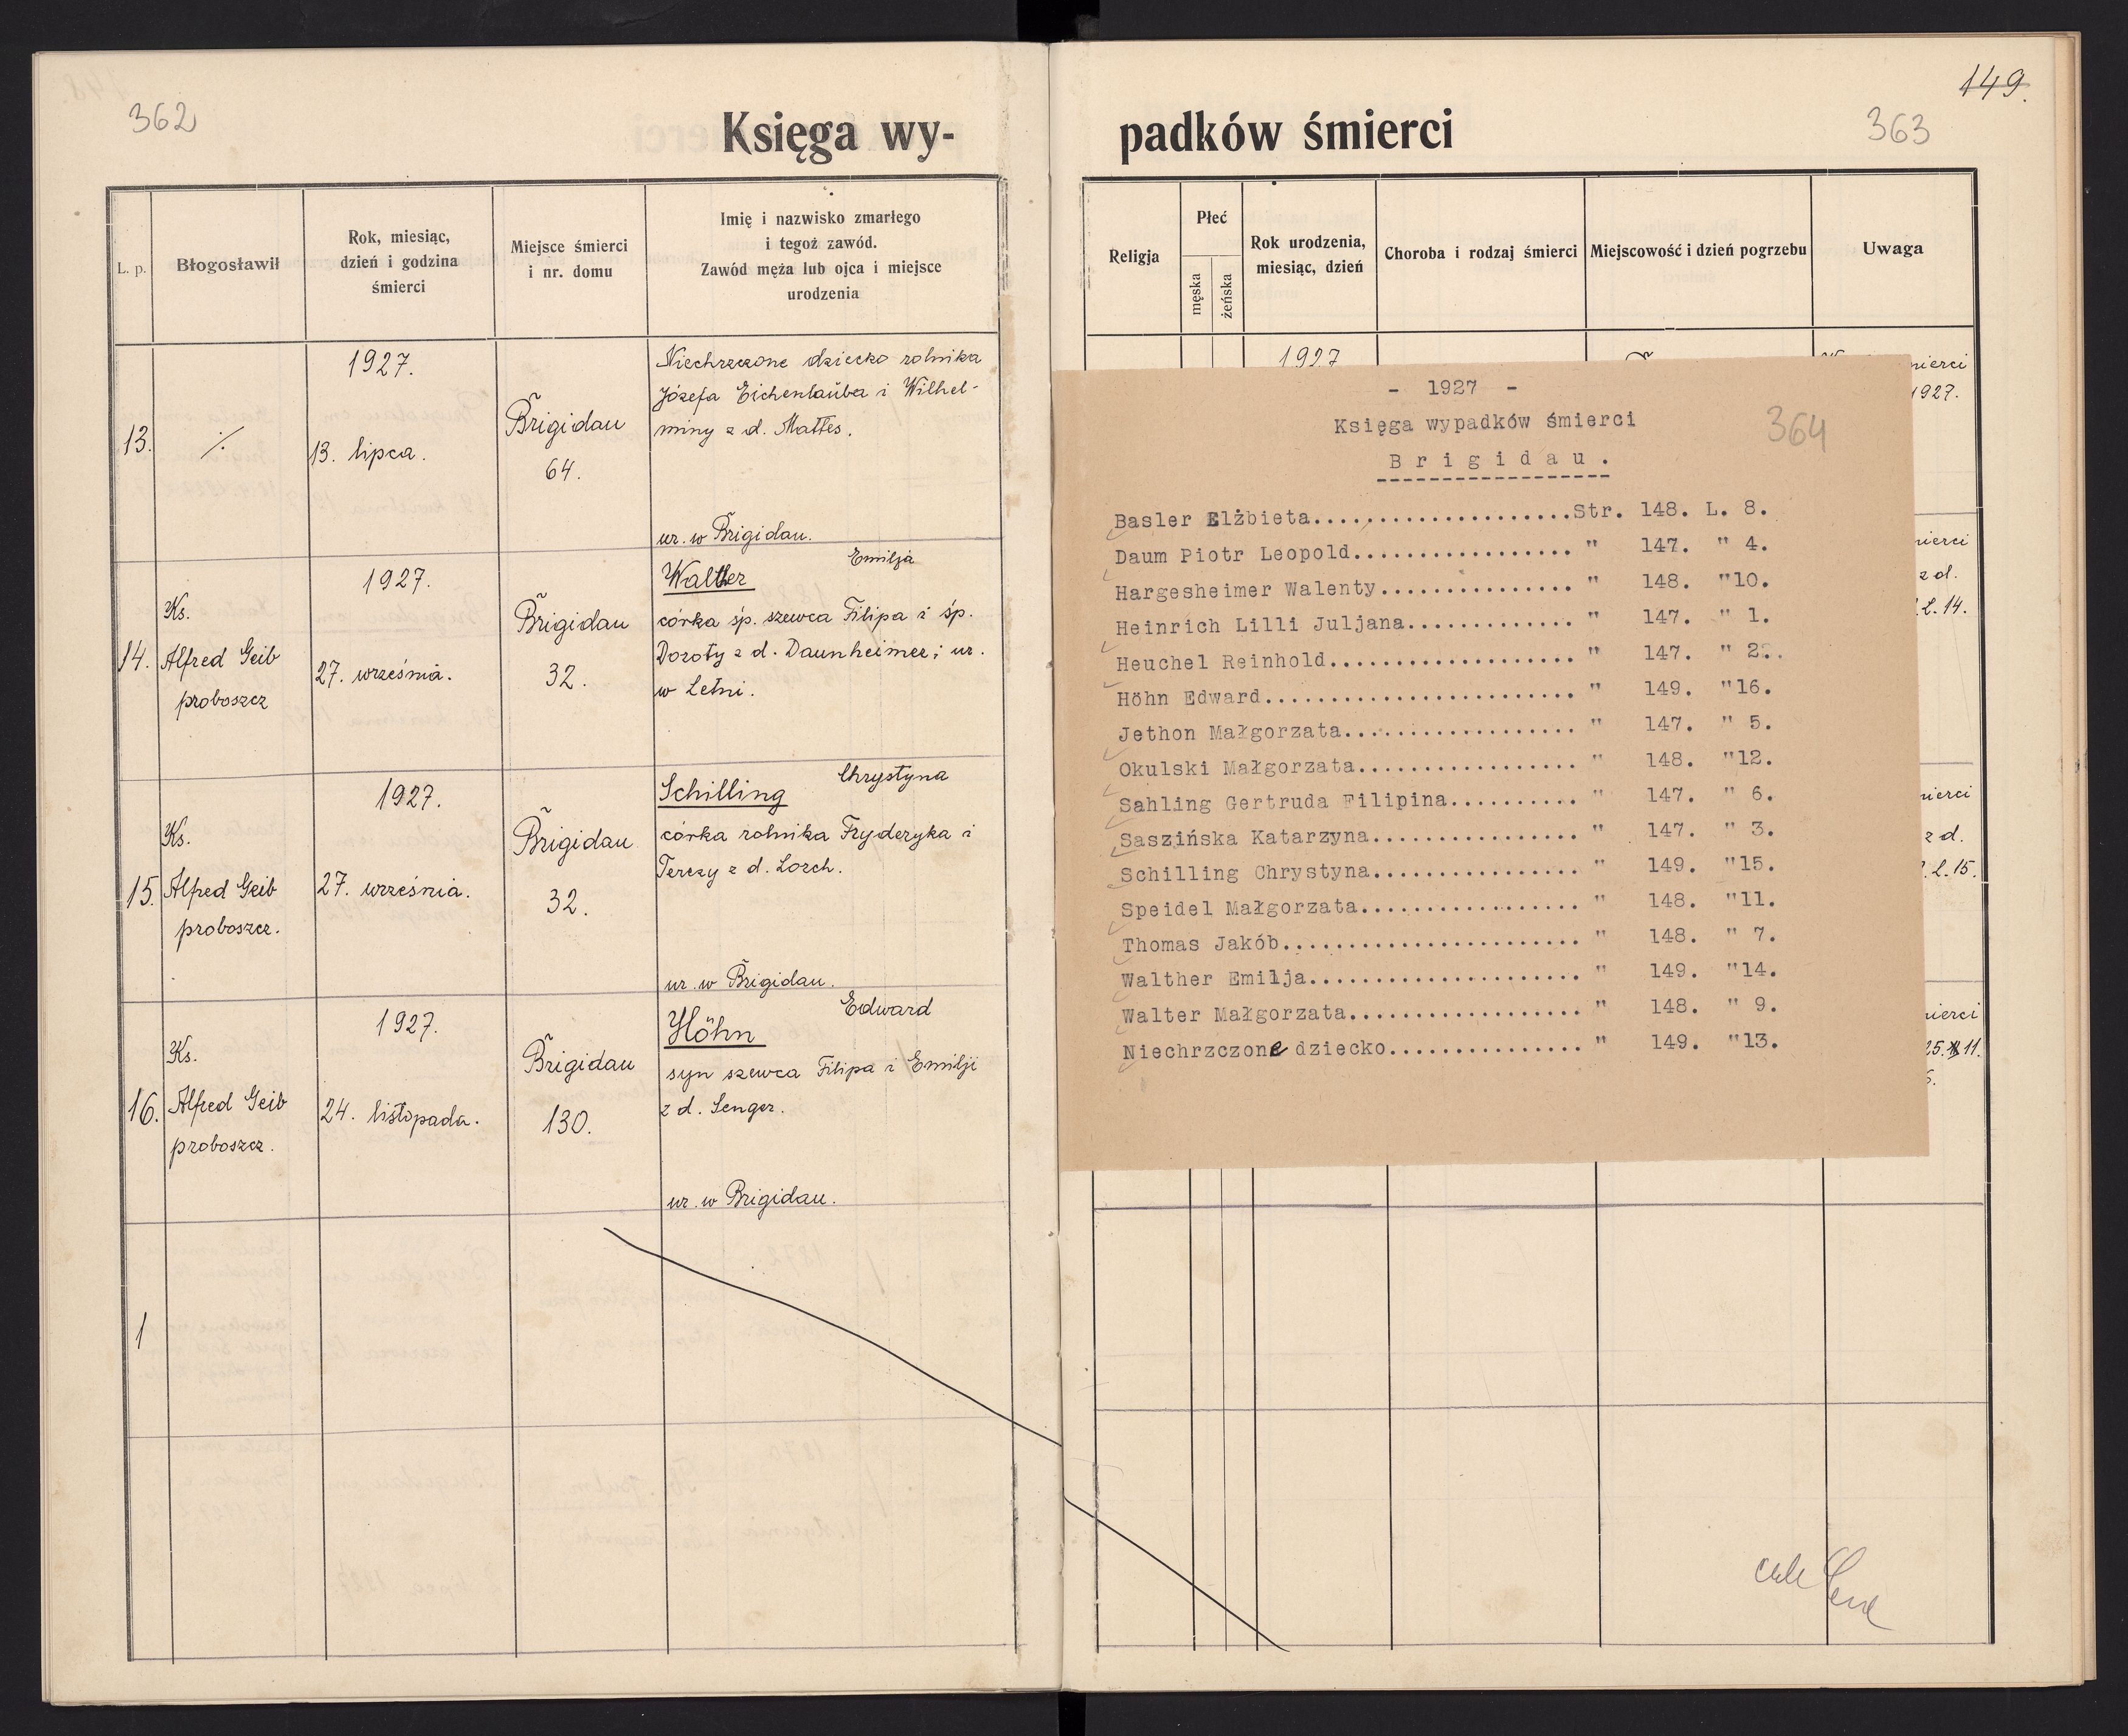 362
Księga wy-
L. p.
Błogosławił
Rok, miesiąc,
dzień i godzina
śmierci
Miejsce śmierci
i nr. domu
Imię i nazwisko zmarłego
i tegoż zawód.
Zawód męża lub ojca i miejsce
urodzenia
13.
⁒
1927.
13. lipca.
Brigidau
64.
Niechrzczone dziecko rolnika
Józefa Eichenlauba i Wilhel-
miny z d. Mattes.
ur. w Brigidau.
14.
Ks.
Alfred Geib
proboszcz
1927.
27. września.
Brigidau
32.
Emilja
Walther
córka śp. szewca Filipa i śp.
Doroty z d. Daunheimer; ur.
w Letni.
15.
Ks.
Alfred Geib
proboszcz.
1927.
27. września.
Brigidau
32.
Chrystyna
Schilling
córka rolnika Fryderyka i
Terezy z d. Lorch.
ur. w Brigidau.
16.
Ks.
Alfred Geib
proboszcz.
1927.
24. listopada.
Brigidau
130.
Edward
Höhn
syn szewca Filipa i Emilji
z d. Senger.
ur. w Brigidau.
1
149.
padków śmierci
363
Religja
Płeć
męska
żeńska
Rok urodzenia,
miesiąc, dzień
Choroba i rodzaj śmierci
Miejscowość i dzień pogrzebu
Uwaga
1927
mierci
1927.
mierci
z d.
L. 14.
mierci
z d.
L. 15.
mierci
25. 11.
- 1927 -
Księga wypadków śmierci
364
Brigidau.
Basler Elżbieta......................Str. 148. L. 8.
Daum Piotr Leopold................. " 147. " 4.
Hargesheimer Walenty............... " 148. "10.
Heinrich Lilli Juljana............. " 147. " 1.
Heuchel Reinhold................... " 147. " 2.
Höhn Edward........................ " 149. "16.
Jethon Małgorzata.................. " 147. " 5.
Okulski Małgorzata................. " 148. "12.
Sahling Gertruda Filipina.......... " 147. " 6.
Saszińska Katarzyna................ " 147. " 3.
Schilling Chrystyna................ " 149. "15.
Speidel Małgorzata................. " 148. "11.
Thomas Jakób....................... " 148. " 7.
Walther Emilja..................... " 149. "14.
Walter Małgorzata.................. " 148. " 9.
Niechrzczone dziecko............... " 149. "13.